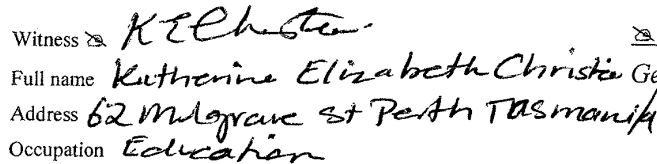 Witness
Full name Katherine Elizabeth Christie Ge
Address 62 Mulgrave St Perth TASmania
Occupation Education